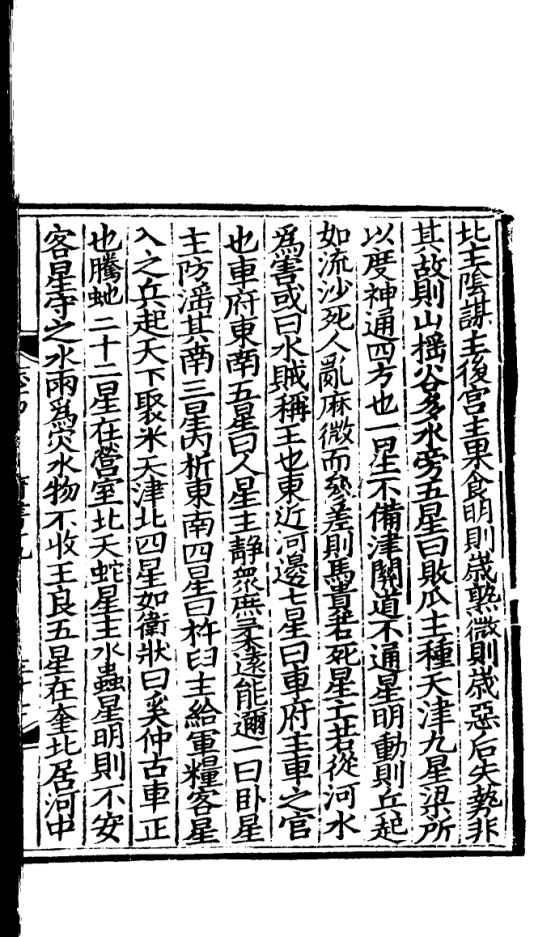 北主陰謀主後宮主果食明則歲熟微則歲惡后失勢非
其故則山揺谷多水旁五星曰敗瓜主種天津九星梁所
以度神通四方也一星不備津關道不通星明動則兵起
如流沙死人亂麻微而參差則馬貴若死星亡若從河水
爲害或曰水賊稱王也東近河邊七星曰車府主車之官
也車府東南五星曰人星主静衆庶柔遠能邇一曰卧星
主防滛其南三星内析東南四星曰杵臼主給軍糧客星
入之兵起天下聚米天津北四星如衛狀曰奚仲古車正
也騰虵二十二星在營室北天蛇星主水蟲星明則不安
客星守之水雨爲災水物不收王良五星在奎北居河中